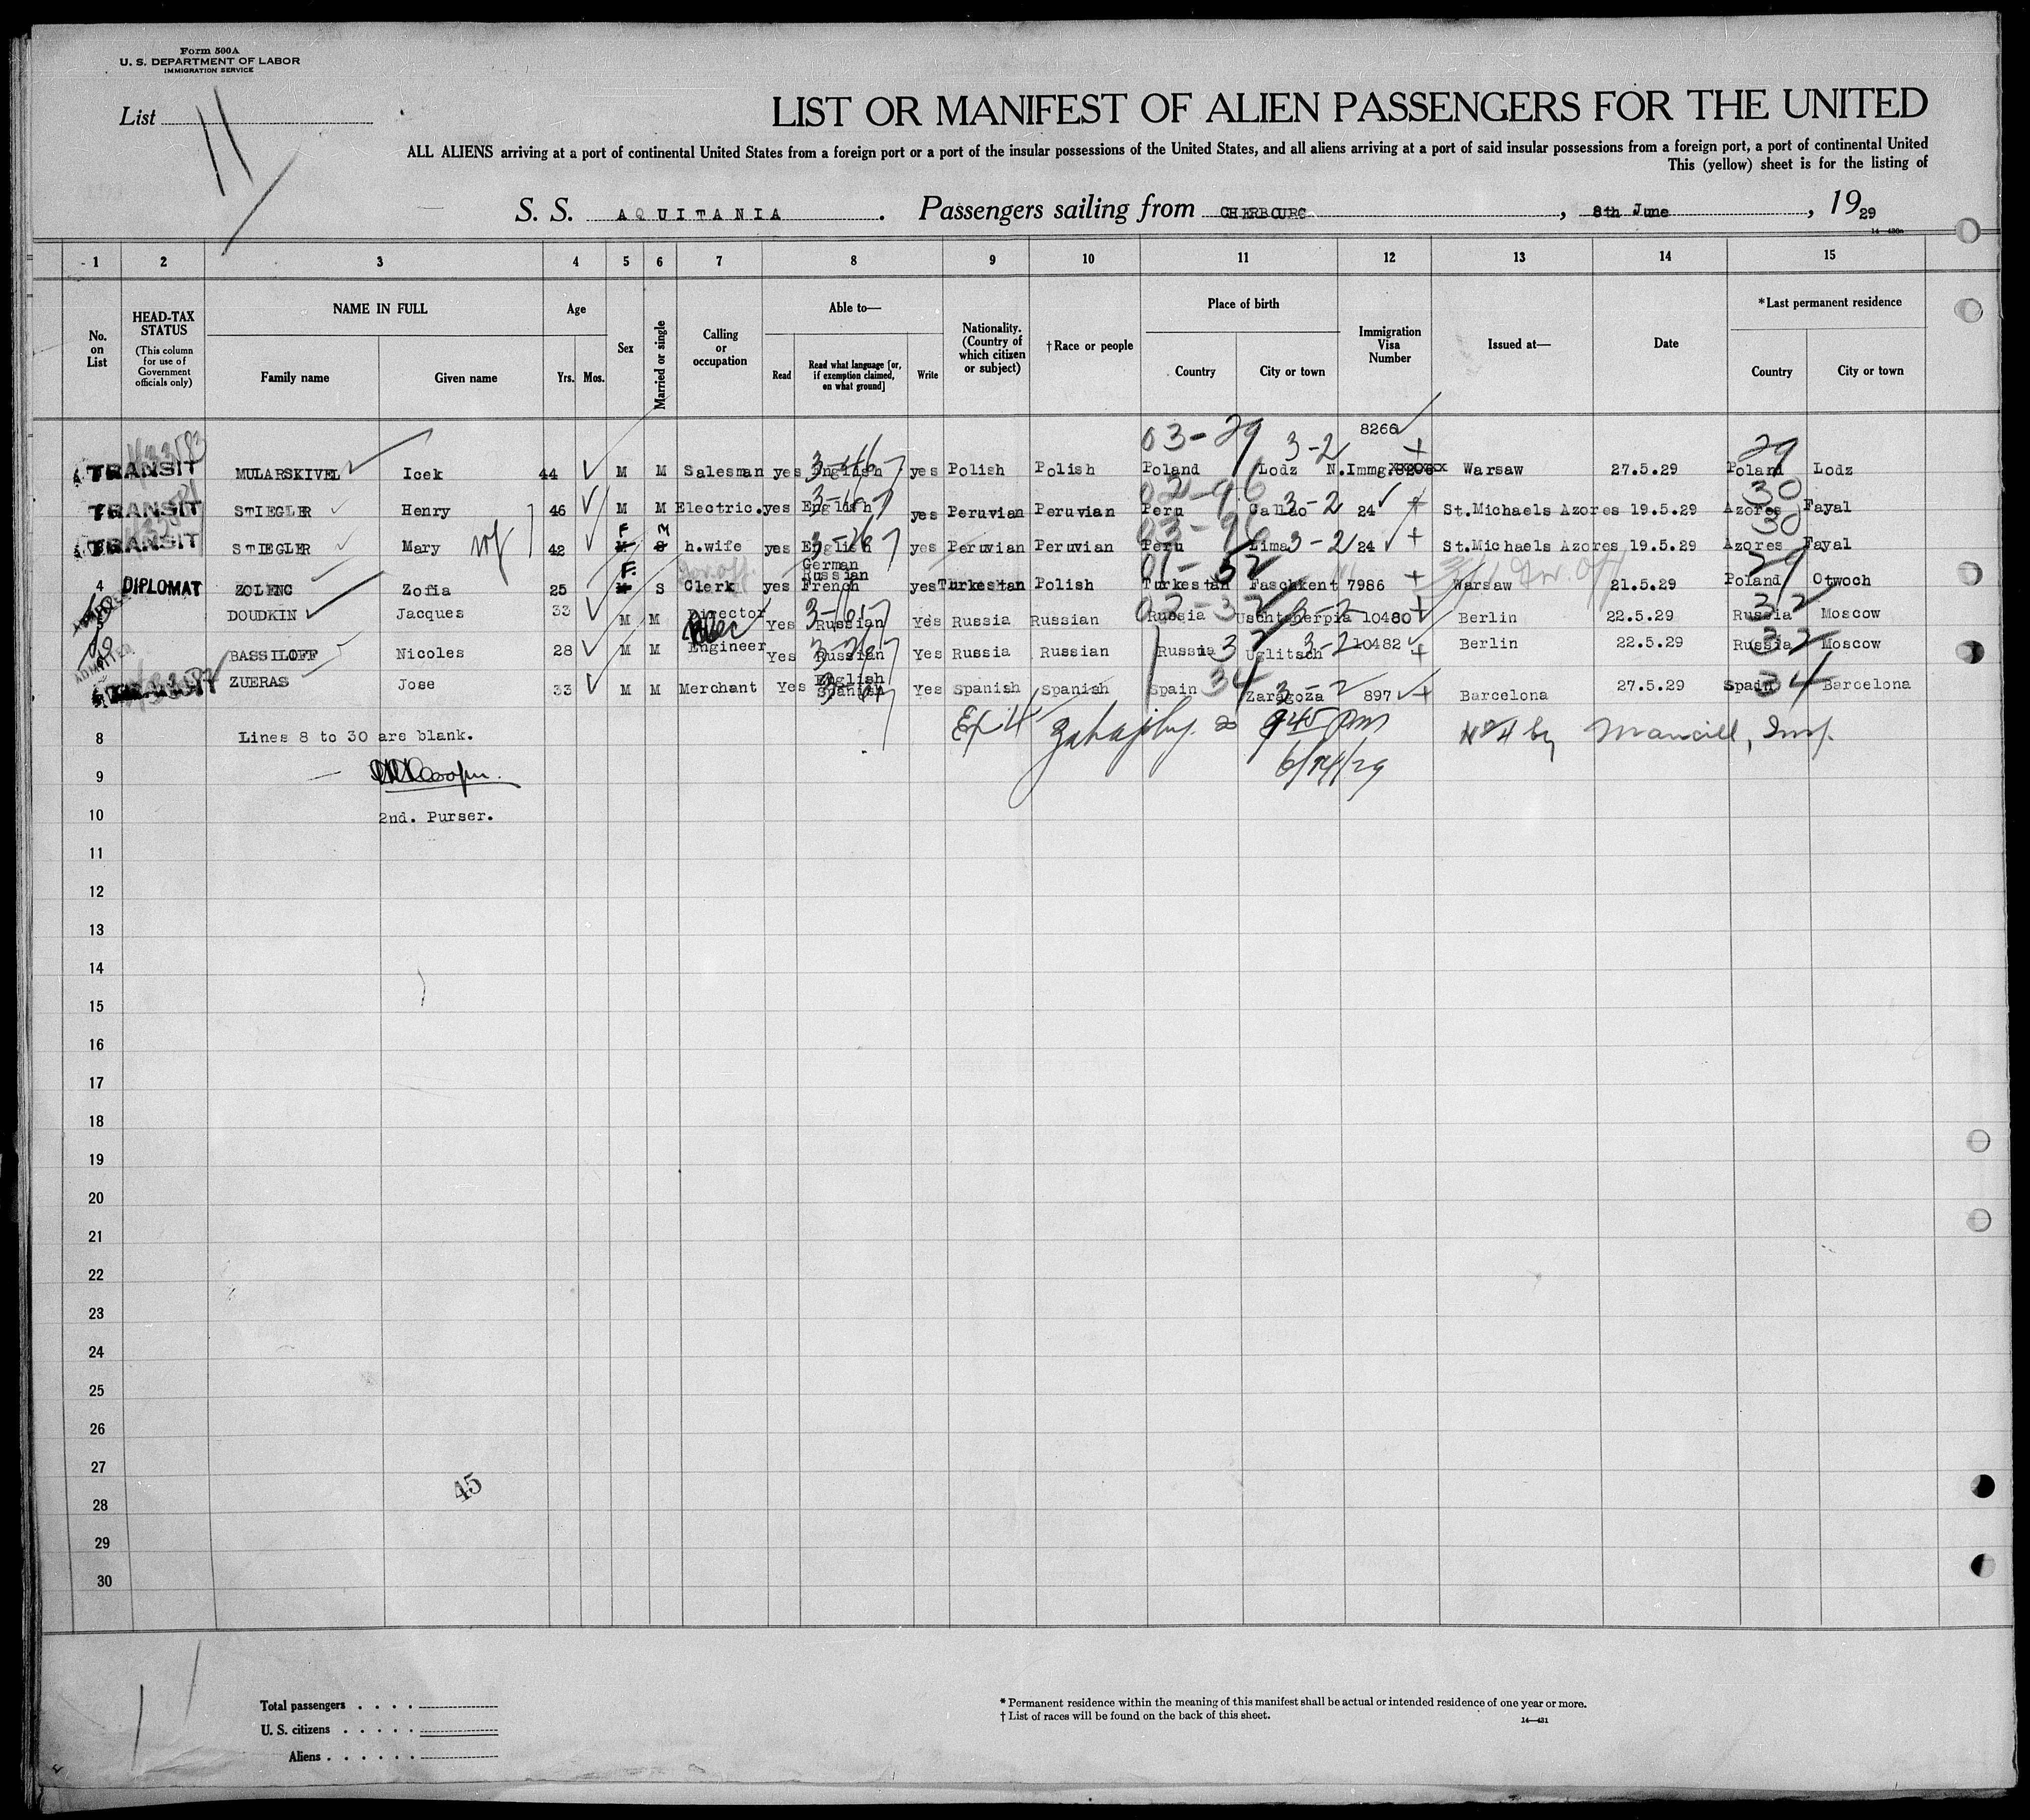 Form 500A
U. S. DEPARTMENT OF LABOR
IMMIGRATION SERVICE
List 11
LIST OR MANIFEST OF ALIEN PASSENGERS FOR THE UNITED
ALL ALIENS arriving at a port of continental United States from a foreign port or a port of the insular possessions of the United States, and all aliens arriving at a port of said insular possessions from a foreign port, a port of continental United
This (yellow) sheet is for the listing of
S. S. AQUITANIA. Passengers sailing from CHERBOURG, 8th June, 1929
14—430a
1 2 3 4 5 6 7 8 9 10 11 12 13 14 15
No. on List
HEAD-TAX STATUS (This column for use of Government officials only)
NAME IN FULL
Family name Given name
Age
Yrs. Mos.
Sex
Married or single
Calling or occupation
Able to—
Read
Read what language [or, if exemption claimed, on what ground]
Write
Nationality. (Country of which citizen or subject)
†Race or people
Place of birth
Country City or town
Immigration Visa Number
Issued at—
Date
*Last permanent residence
Country City or town
03-29 3-2 8266 29
TRANSIT MULARSKIVEL Icek 44 M M Salesman yes English yes Polish Polish Poland Lodz N.Immg. Warsaw 27.5.29 Poland Lodz
TRANSIT STIEGLER Henry 46 M M Electric. yes English yes Peruvian Peruvian Peru Callao 3-2 24 St.Michaels Azores 19.5.29 Azores Fayal
TRANSIT STIEGLER Mary wf 42 F M h.wife yes English yes Peruvian Peruvian Peru Lima 3-2 24 St.Michaels Azores 19.5.29 Azores Fayal
4 DIPLOMAT ZOLENC Zofia 25 F. S Clerk yes German Russian French yes Turkestan Polish Turkestan Faschkent 7986 Warsaw 21.5.29 Poland Otwoch
5 DOUDKIN Jacques 33 M M Director Yes Russian Yes Russia Russian Russia Uschtcherpia 3-2 10480 Berlin 22.5.29 Russia Moscow
ADMITTED BASSILOFF Nicoles 28 M M Engineer Yes Russian Yes Russia Russian Russia Uglitsch 3-2 10482 Berlin 22.5.29 Russia Moscow
TRANSIT ZUERAS Jose 33 M M Merchant Yes English Spanish Yes Spanish Spanish Spain 34 Zaragoza 3-2 897 Barcelona 27.5.29 Spain 34 Barcelona
8 Lines 8 to 30 are blank. 945 PM No 4 by Mancill, Insp.
9 6/14/29
10 2nd. Purser.
11
12
13
14
15
16
17
18
19
20
21
22
23
24
25
26
27
45
28
29
30
Total passengers
U. S. citizens
Aliens
* Permanent residence within the meaning of this manifest shall be actual or intended residence of one year or more.
† List of races will be found on the back of this sheet.
14—431